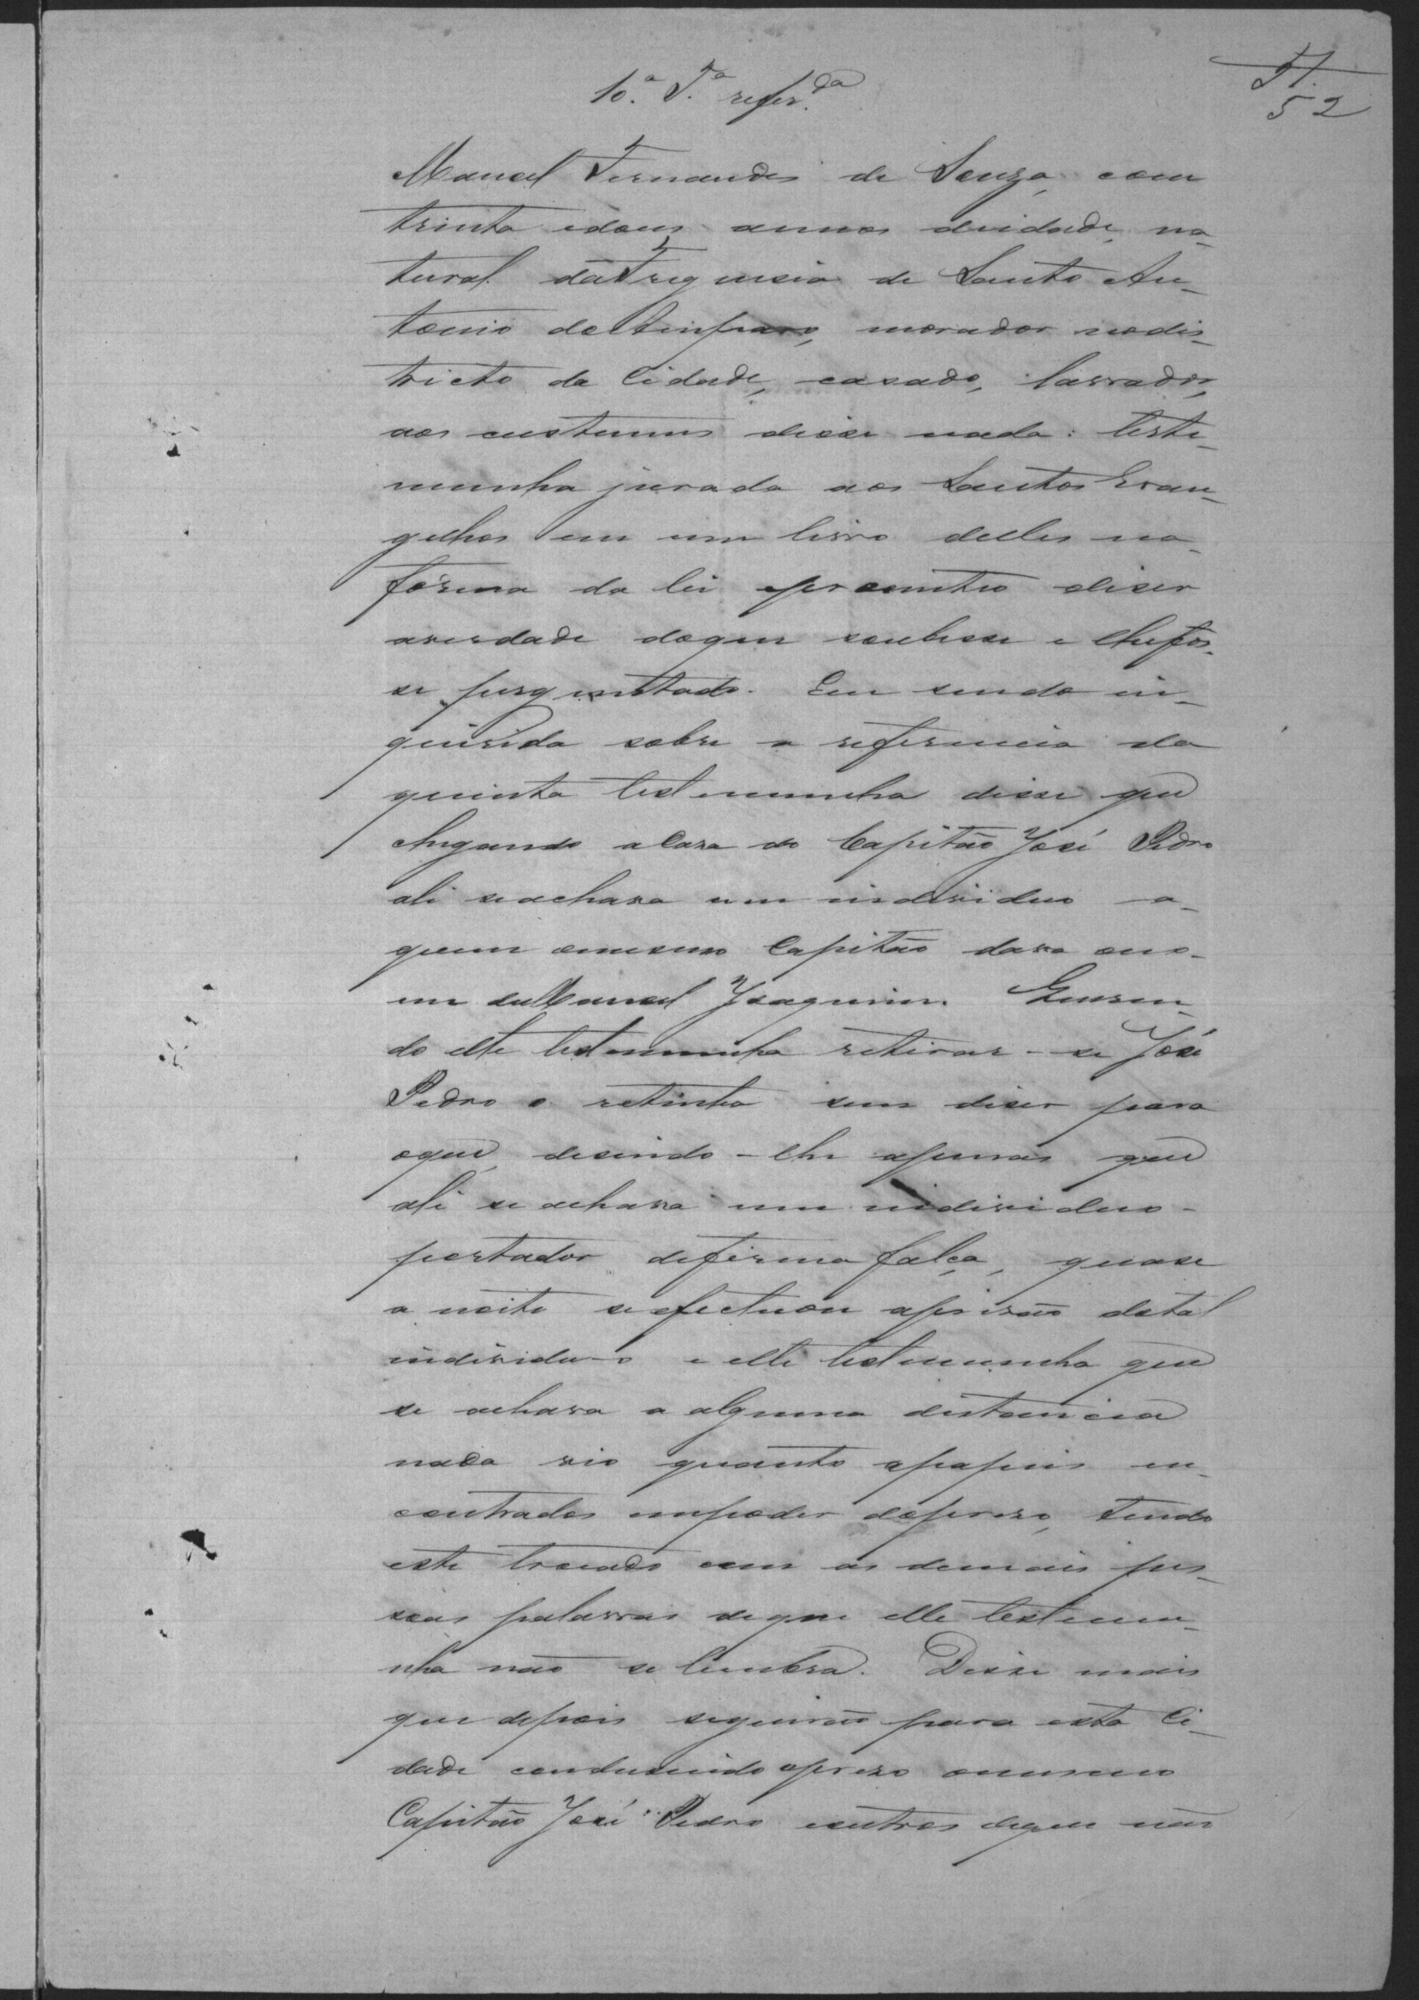 10.ª T.ª refer.da
51.
52
Manoel Fernandes de Souza, com
trinta edous annos deidade, na-
tural da Freguesia de Santo An-
tonio do Amparo, morador nodis-
tricto da Cidade, casado, lavrador,
aos custumes disse nada: teste-
munha jurada aos Santos Evan-
gelhos em um livro delles na
forma da lei eprometteo diser
averdade doque soubesse e lhefos-
se perguntado. Em sendo in-
quirida sobre a referencia da
quinta testemunha disse que
chegando aCasa do Capitão José Pedro
ali seachava um individuo a-
quem omesmo Capitão dava ono-
me de Manoel Joaquim. Queren-
do elle testemunha retirar-se José
Pedro o retinha sem diser para
oque, disendo-lhe apenas que
ali se achava um individuo
portador defirma falça, quase
a noite seefectuou aprisão detal
individuo e elle testemunha que
se achava a alguma distancia
nada vio quanto apapeis en-
contrados empoder dopreso, tendo
este trocado com as demais pes-
soas palavras deque elle testemu-
nha não se lembra. Disse mais
que depois seguirão para esta Ci-
dade condusindo opreso omesmo
Capitão José Pedro eoutros dequem não